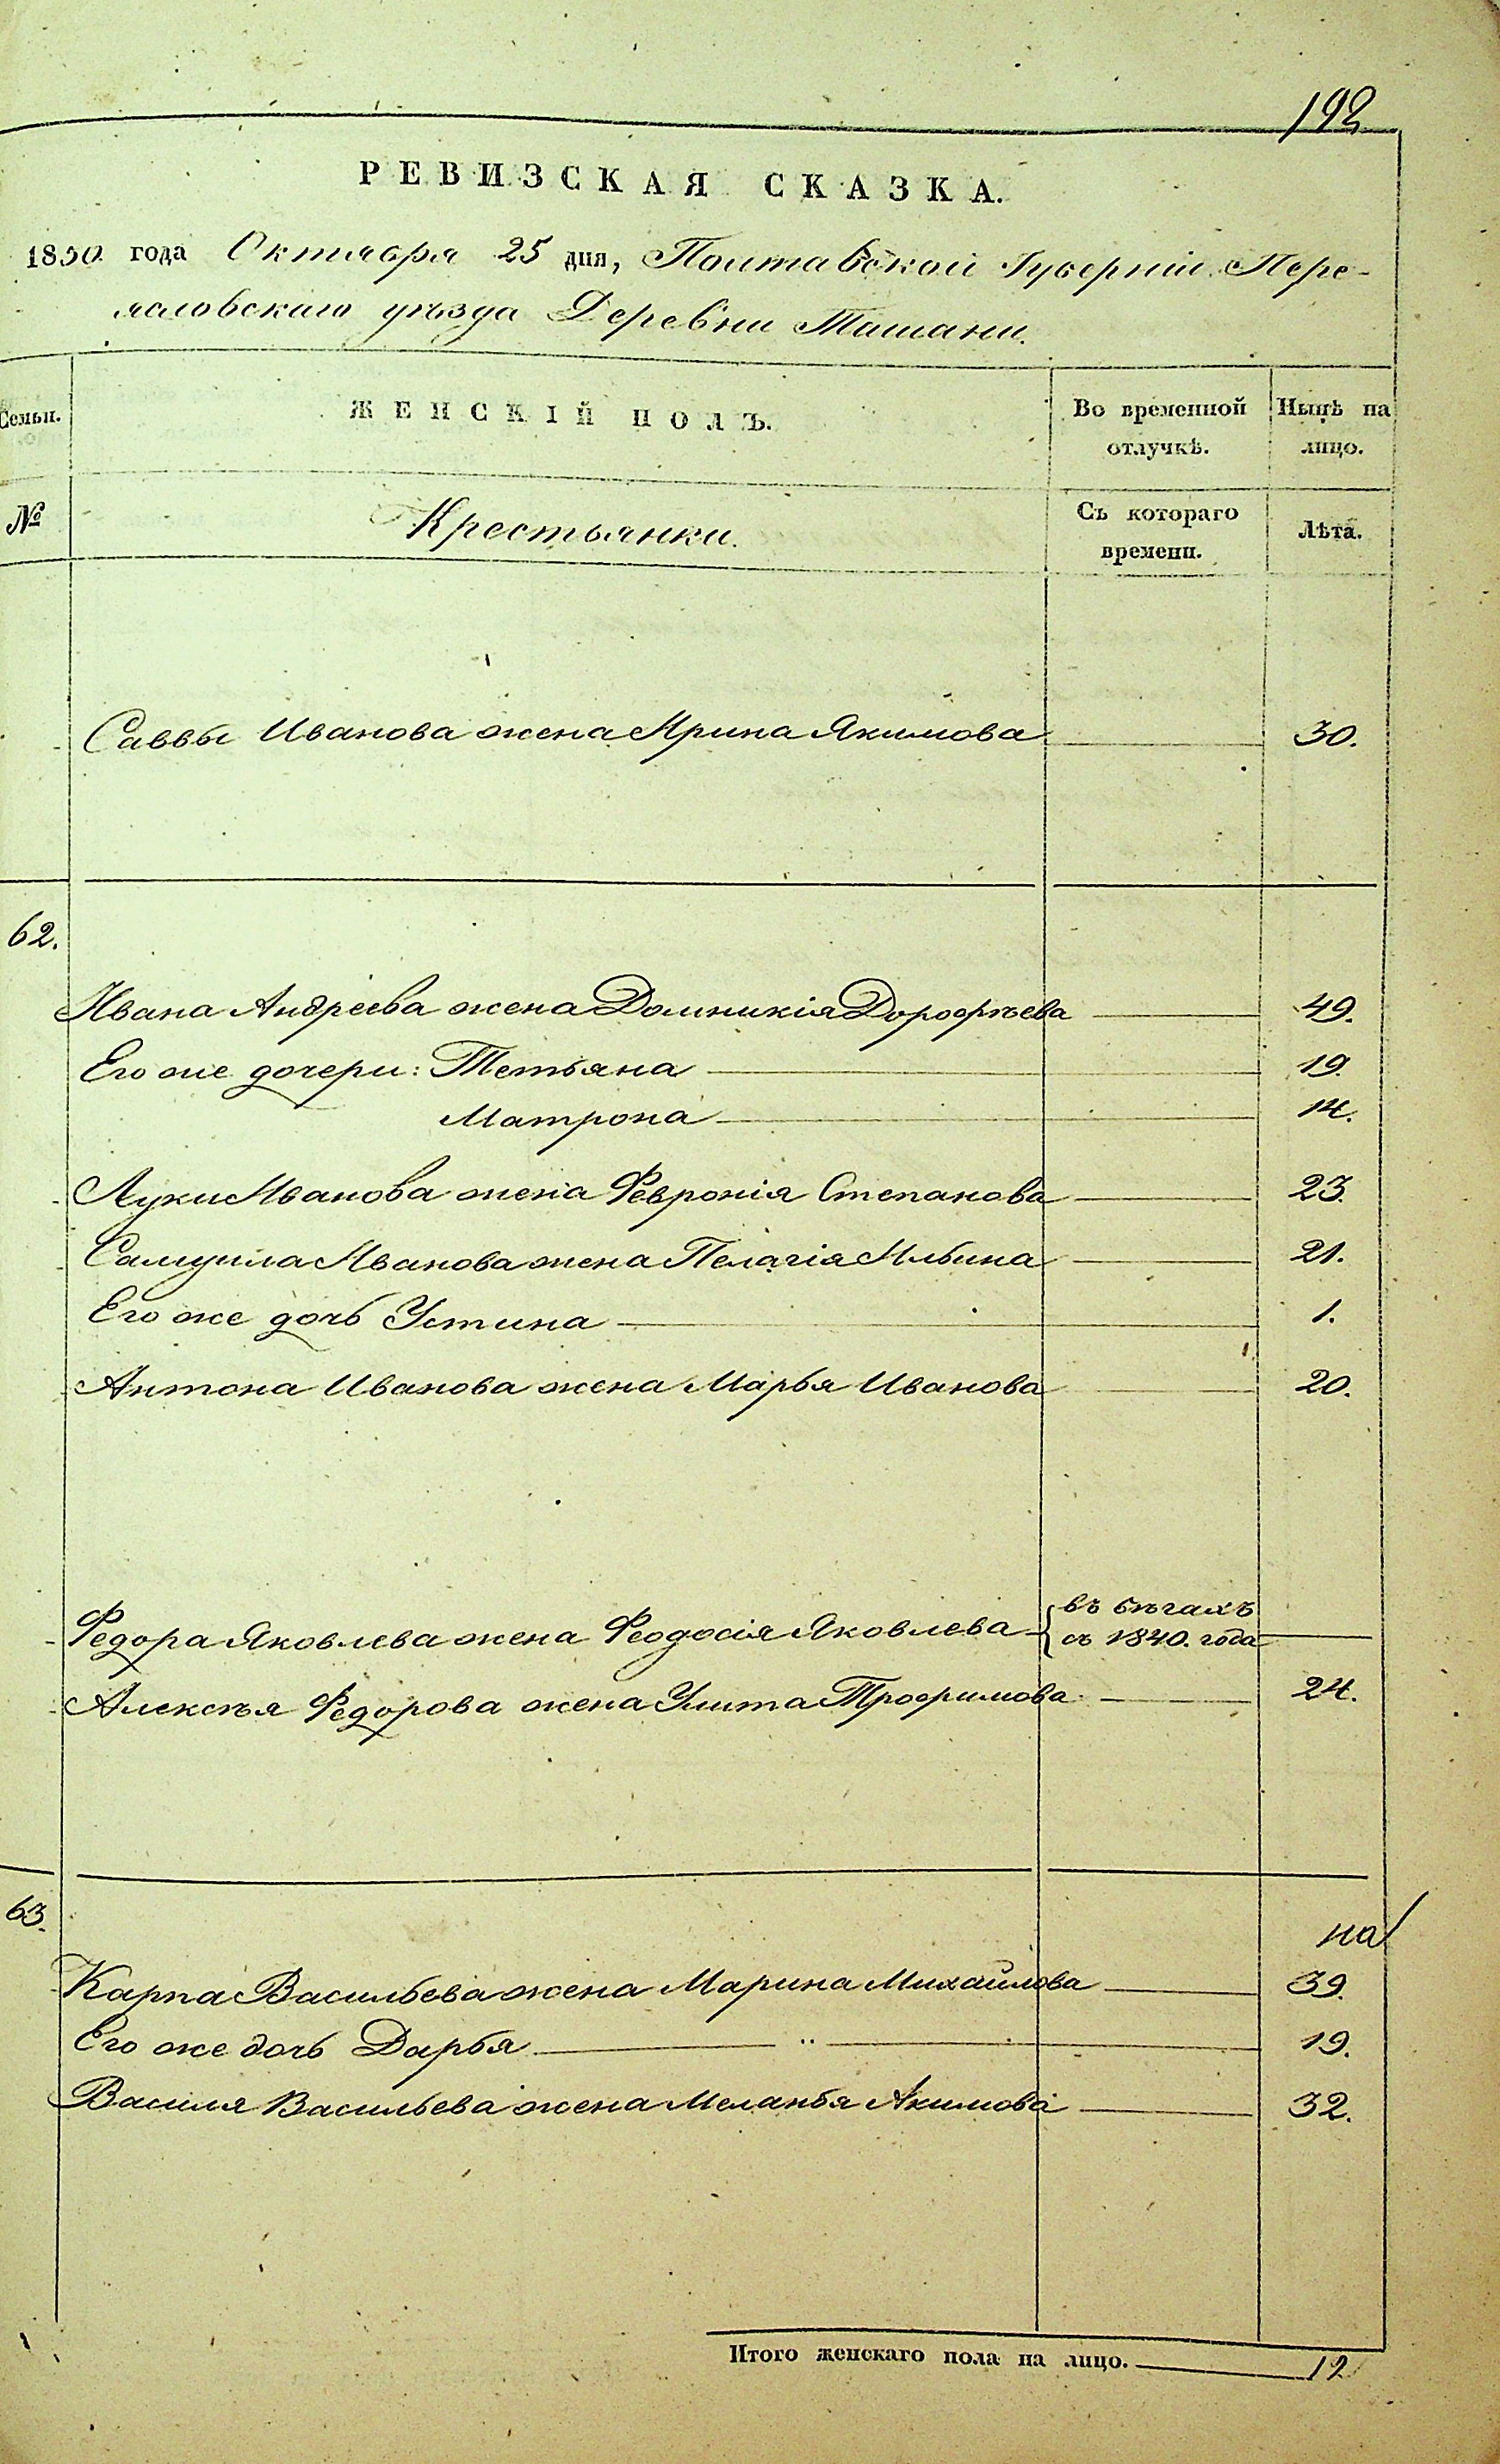 192
РЕВИЗСКАЯ СКАЗКА.
1850 года Октября 25 дня, Полтавской Губерніи Пере-
ясловскаго уѣзда Деревни Ташани.
Семьи.
ЖЕНСКІЙ ПОЛЪ.
Во временной
отлучкѣ.
Нынѣ на
лицо.
№
Крестьянки.
Съ котораго
времени.
Лѣта.
Саввы Иванова жена Ирина Якимова 30.
62.
Ивана Андреева жена Домникія Дорофѣева 49.
Его же дочери: Тетьяна 19.
Матрона 14.
Луки Иванова жена Февронія Степанова 23.
Самуила Иванова жена Пелагія Ильина 21.
Его же дочь Устина 1.
Антона Иванова жена Марья Иванова 20.
Федора Яковлева жена Феодосія Яковлева въ бѣгахъ
съ 1840. года
Алексѣя Федорова жена Улита Трофимова 24.
63.
на
Карпа Васильева жена Марина Михайлова 39.
Его же дочь Дарья 19.
Василя Васильева жена Меланья Акимова 32.
Итого женскаго пола на лицо. 12